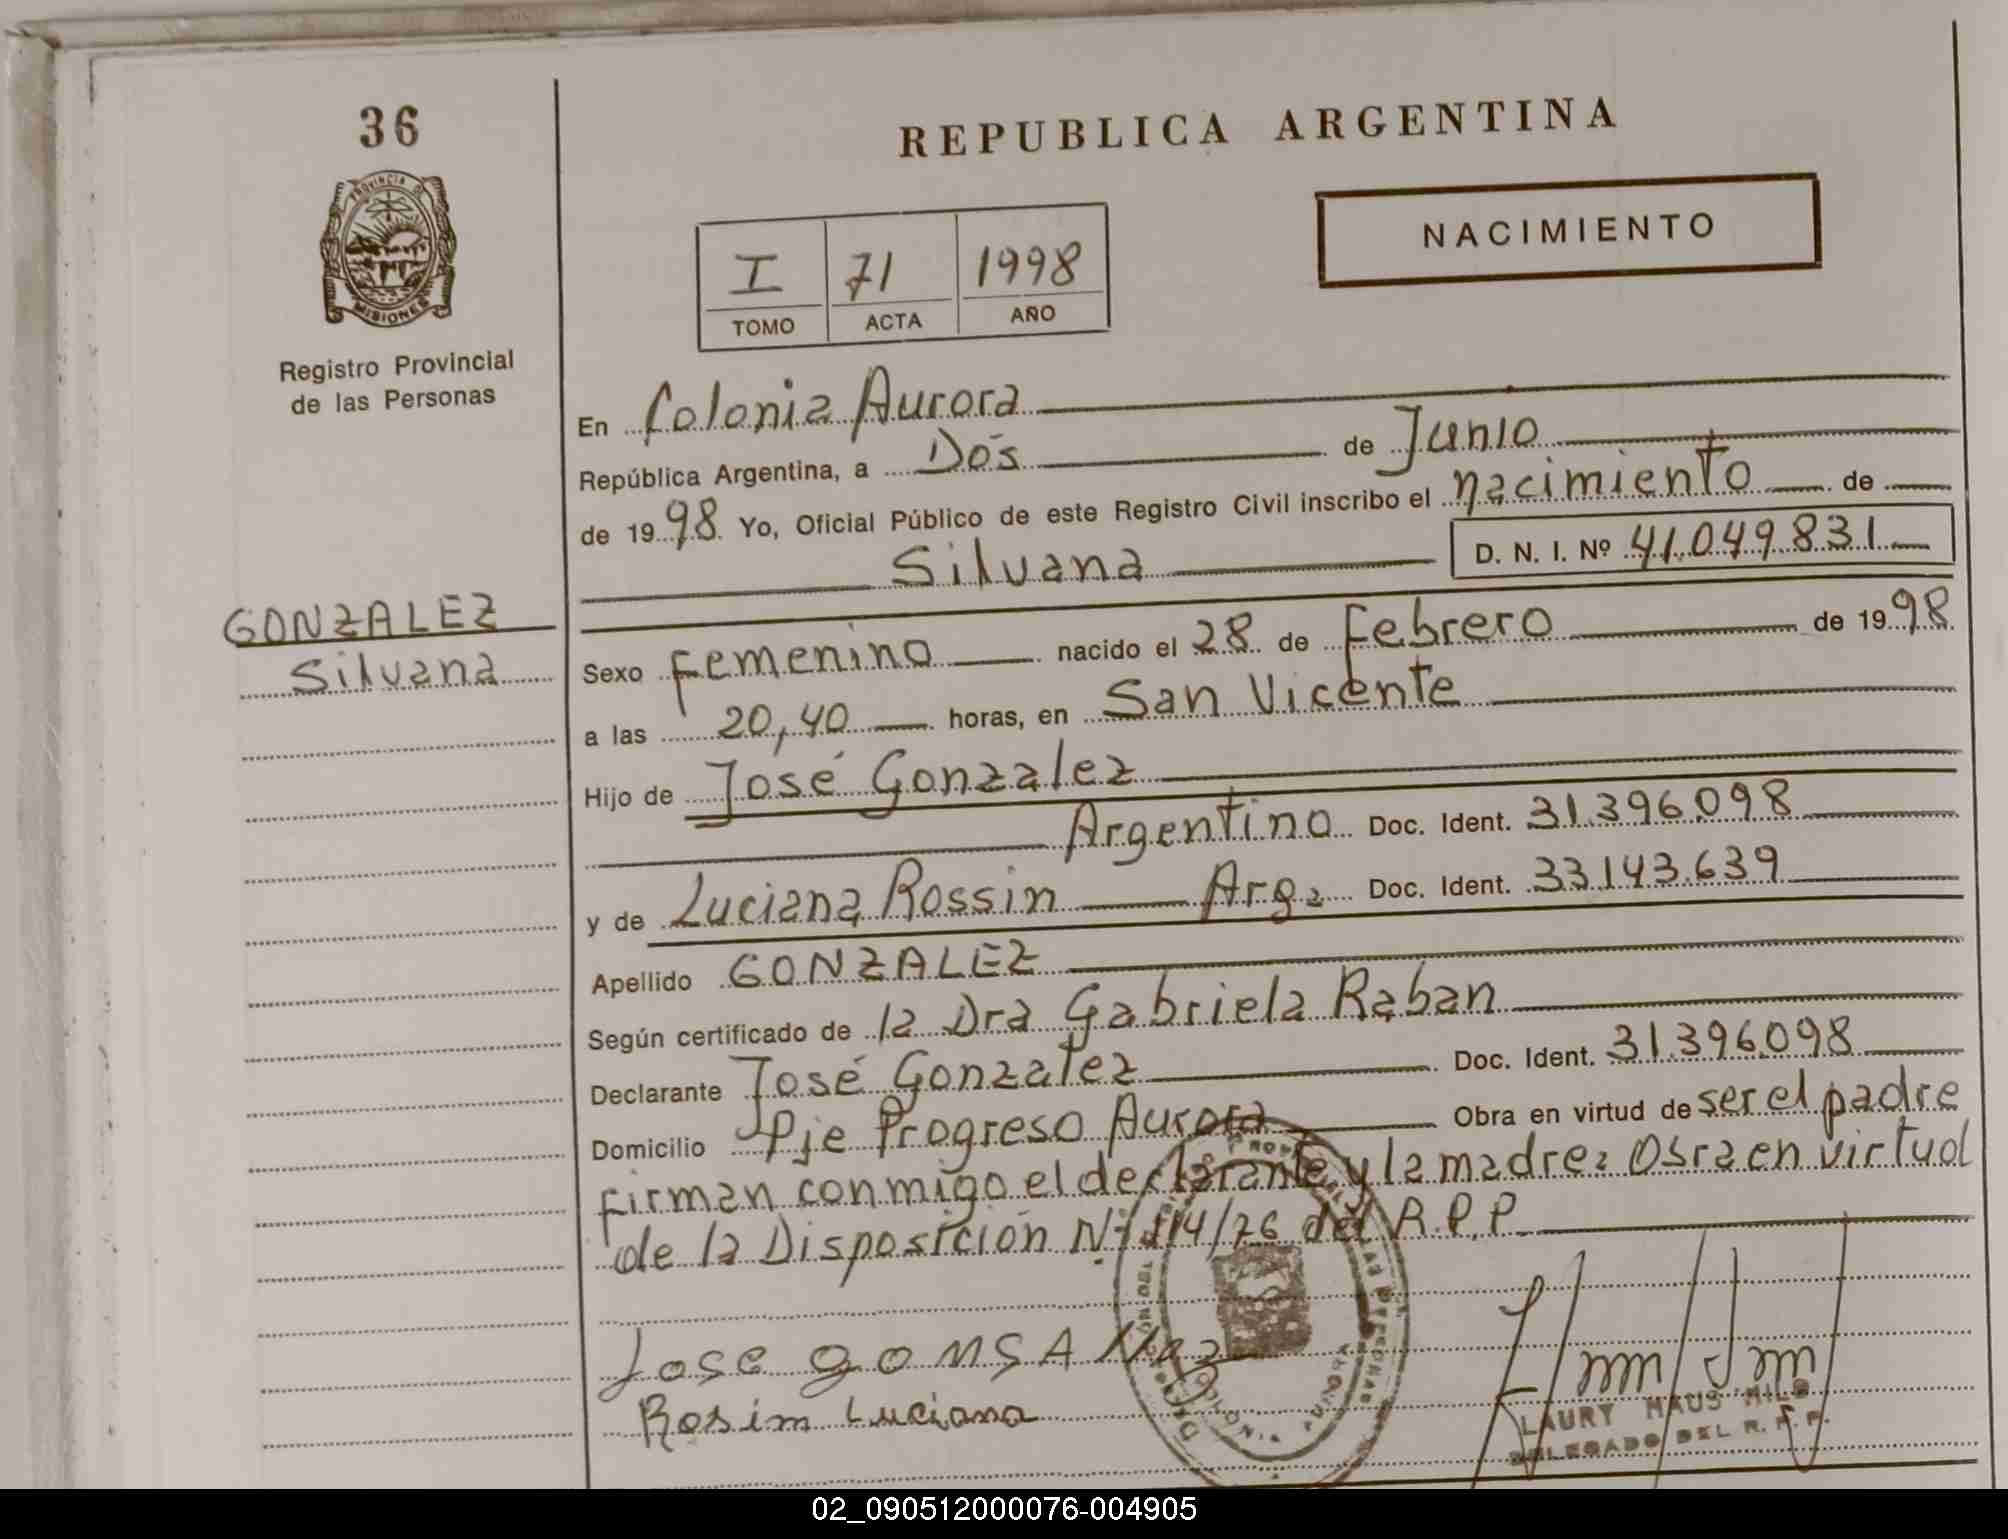 36
PROVINCIA DE
MISIONES
Registro Provincial
de las Personas
GONZALEZ
Silvana
REPUBLICA ARGENTINA
NACIMIENTO
I 71 1998
TOMO ACTA AÑO
En Colonia Aurora
República Argentina, a Dós de Junio
de 1998 Yo, Oficial Público de este Registro Civil inscribo el nacimiento de
Silvana D. N. I. Nº 41.049.831
Sexo Femenino nacido el 28 de Febrero de 1998
a las 20,40 horas, en San Vicente
Hijo de José Gonzalez
Argentino Doc. Ident. 31.396.098
y de Luciana Rossin Arga Doc. Ident. 33.143.639
Apellido GONZALEZ
Según certificado de la Dra Gabriela Raban
Declarante José Gonzalez Doc. Ident. 31.396.098
Domicilio Pje Progreso Aurora Obra en virtud de ser el padre
firman conmigo el declarante y la madre: Obra en virtud
de la Disposición Nº 114/76 del R.P.P.
Jose
Rosim Luciana
LAURY HAUS MILO
DELEGADO DEL R. P. P.
02_090512000076-004905